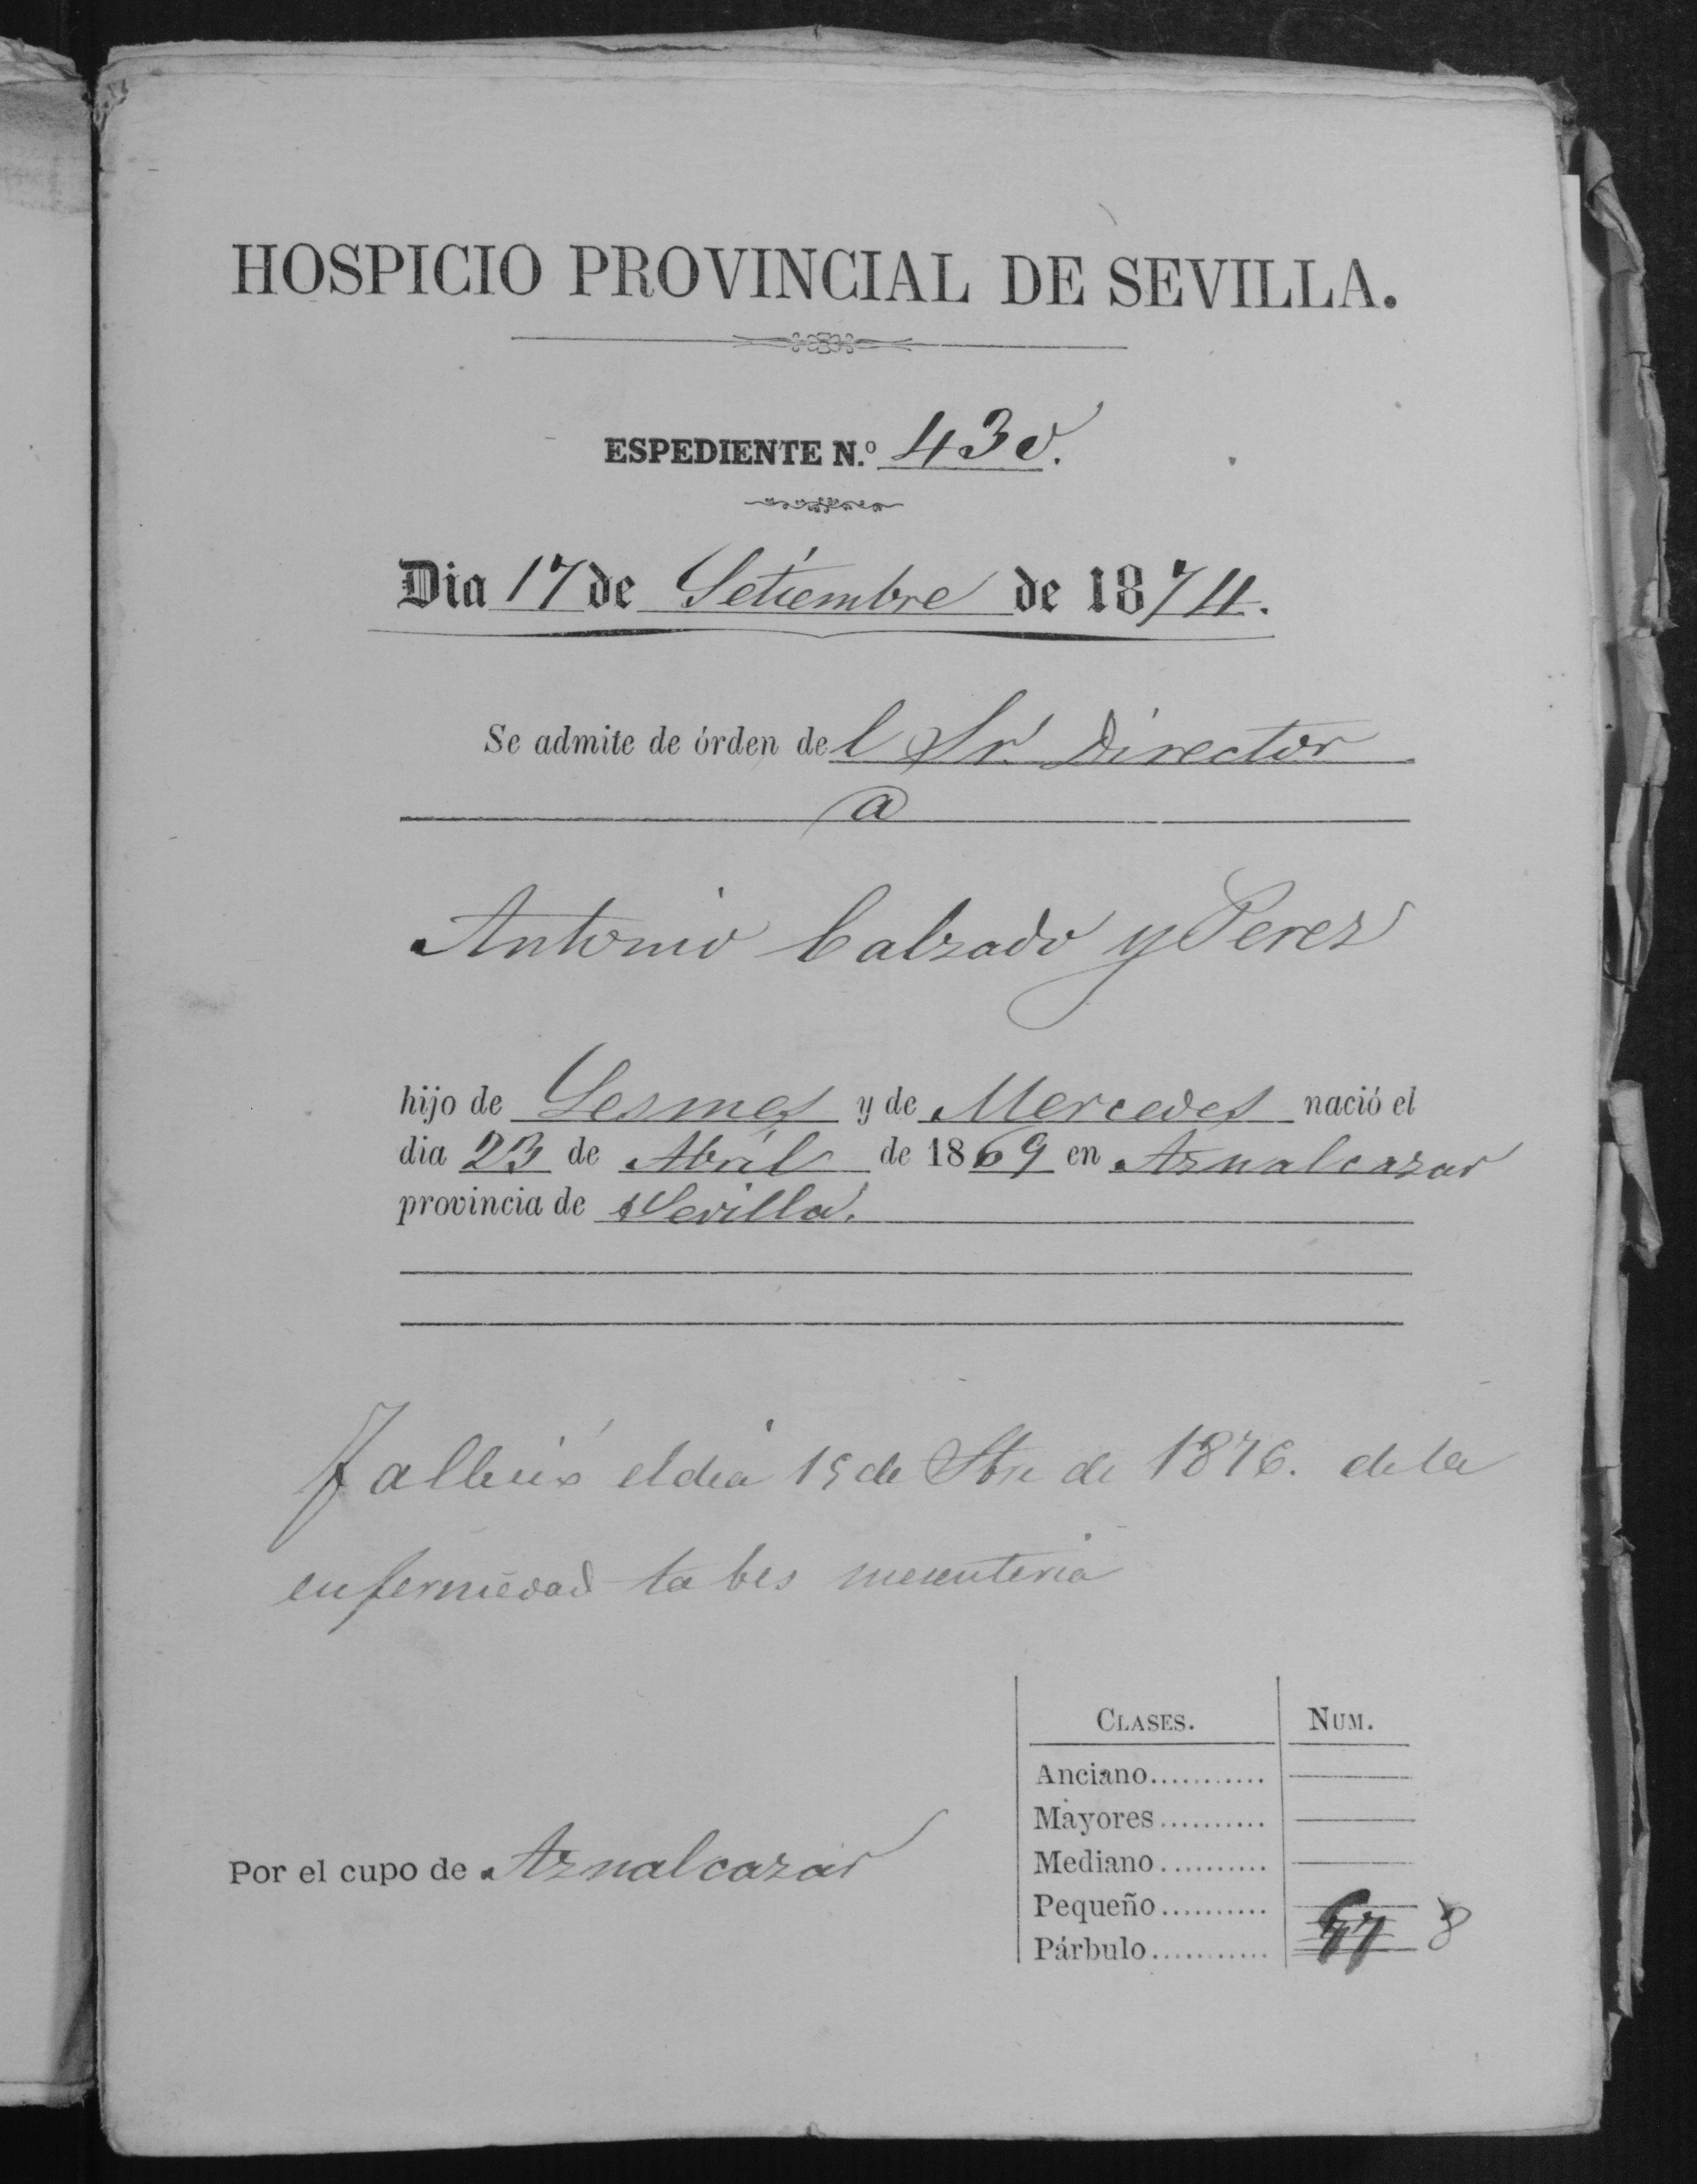 HOSPICIO PROVINCIAL DE SEVILLA.
ESPEDIENTE N.º 430.
Dia 17 de Setiembre de 1874.
Se admite de órden del Sr. Director
a
Antonio Calzado y Perez
hijo de Lesmes y de Mercedes nació el
dia 23 de Abril de 1869 en Aznalcazar
provincia de Sevilla.
Falleció el dia 15 de Stre de 1876. de la
enfermedad tabes mesenteria
CLASES. NUM.
Anciano...........
Mayores..........
Mediano..........
Por el cupo de Aznalcazar
Pequeño..........
Párbulo........... 8